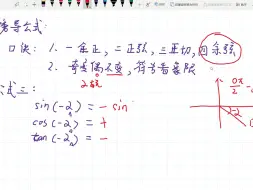 诱导公式:
口诀: 1. 一全正, 二正弦, 三正切, 四余弦
2. 奇变偶不变, 符号看象限
公式三:
sin(-2) = - sin
cos(-2) = +
tan(-2) = -
-2